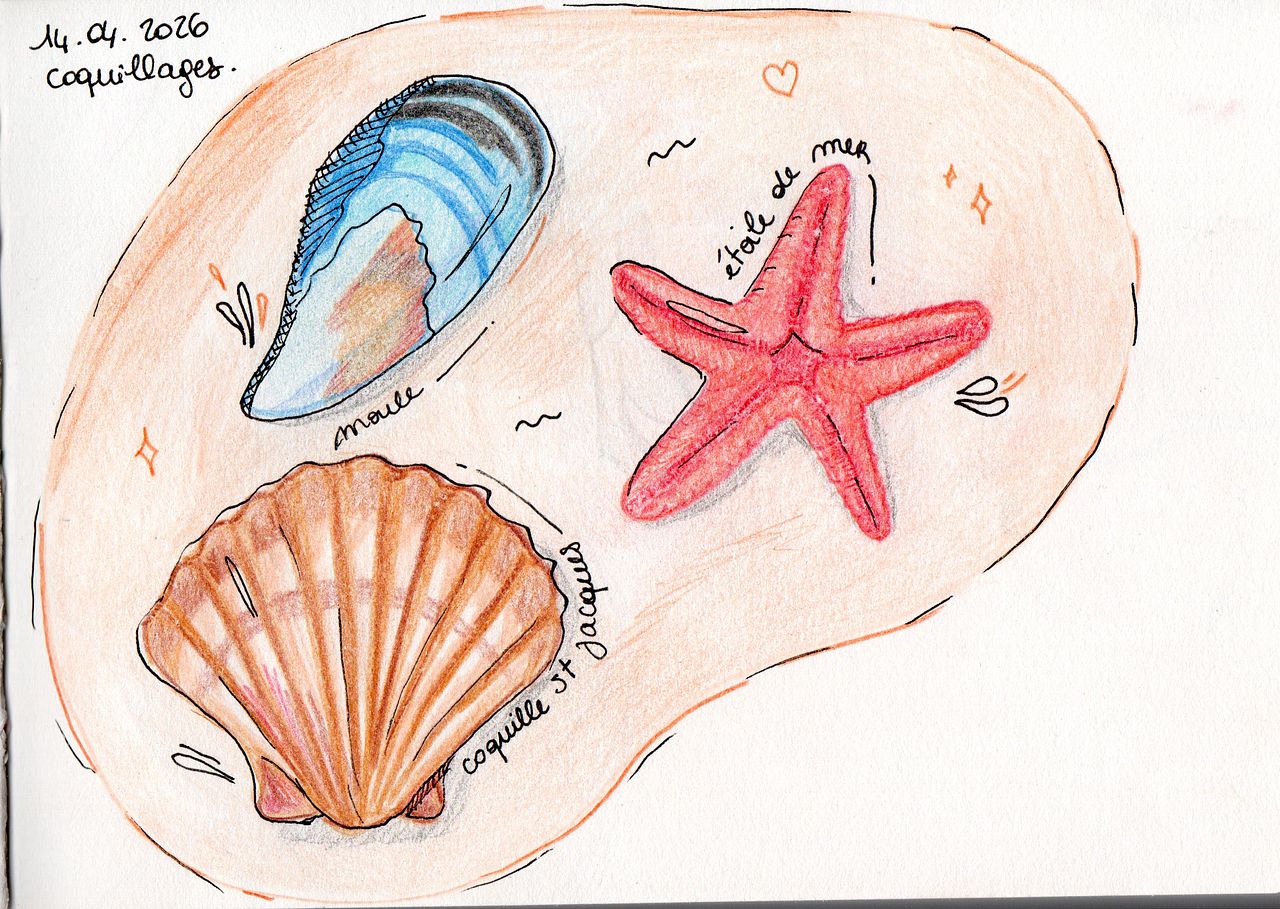 14.04.2026
coquillages.
étoile de mer
moule
coquille st jacques